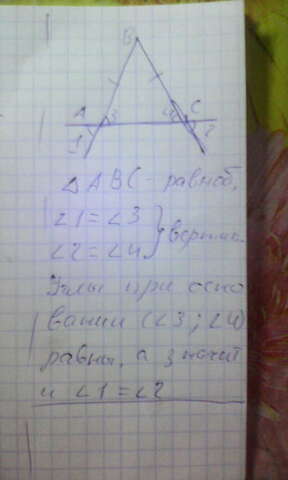 B
A C
1 3 4 2
△ABC - равноб,
∠1=∠3
∠2=∠4 } вертик.
Углы при осно
вании (∠3; ∠4)
равны, а значит
и ∠1=∠2